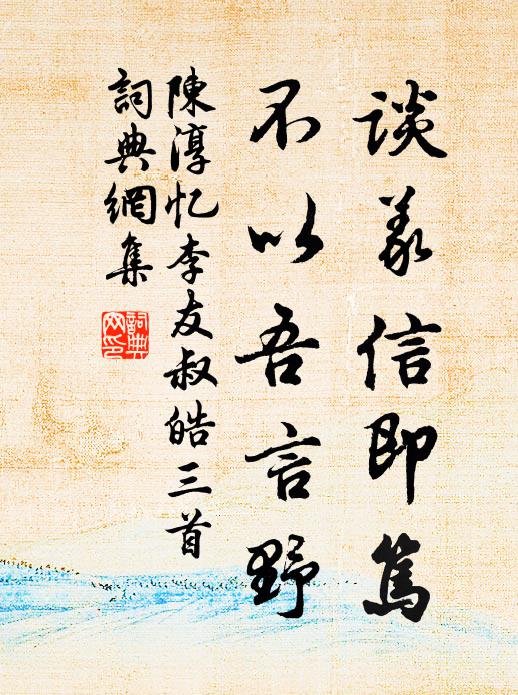 談義信即篤
不以吾言野
陳淳忆李友叔皓三首
詞典網集
詞典网印